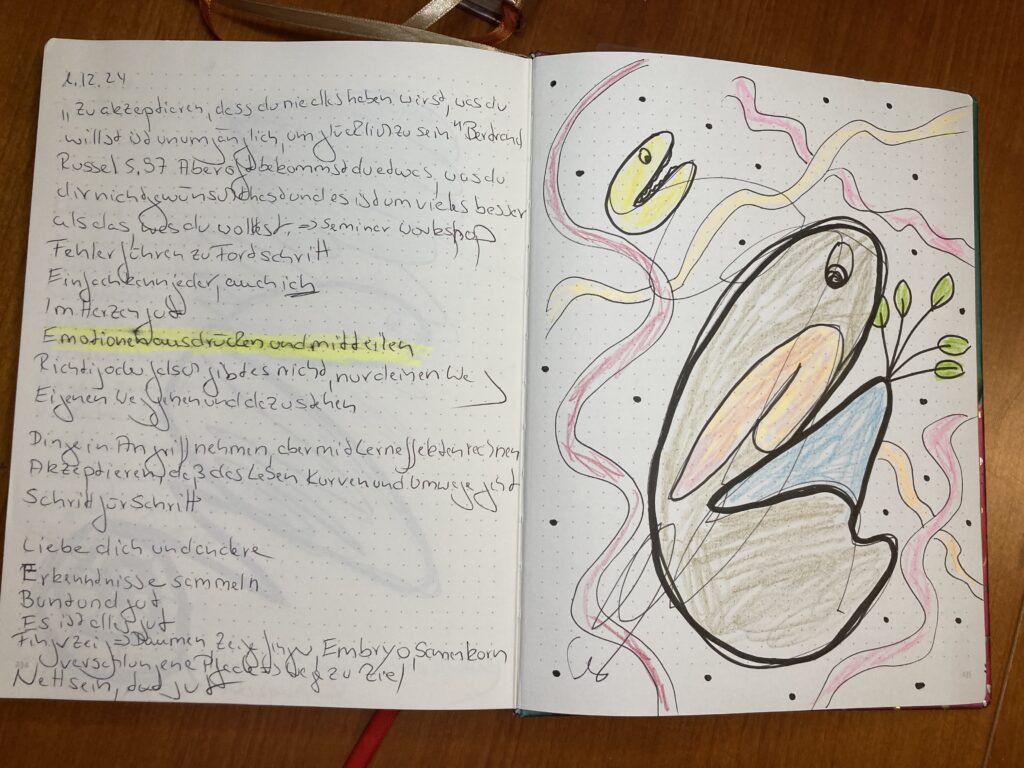 1.12.24
"Zu akzeptieren, dass du nie alles haben wirst, was du
willst ist unumgänglich, um glücklich zu sein" Bertrand
Russel S, 97 Aber oft bekommst du etwas, was du
dir nicht gewünscht hast und es ist um vieles besser
als das was du wolltest. => Seminar
Fehler führen zu Fortschritt
Einfach kann jeder, auch ich
Im Herzen gut
Emotionen ausdrücken und mitteilen
Richtig oder falsch gibt es nicht, nur deinen We
Eigenen Weg gehen und dazu stehen
Dinge in Angriff nehmen, aber mit Lerneffekten rechnen
Akzeptieren, daß das Leben Kurven und Umwege geht
Schritt für Schritt
Liebe dich und andere
Erkenntnisse sammeln
Bunt und gut
Es ist alles gut
Fingerzeig => Daumen Zeigefinger, Embryo, Samenkorn
verschlungene Pfade => Weg zu Ziel
Nett sein, tut gut